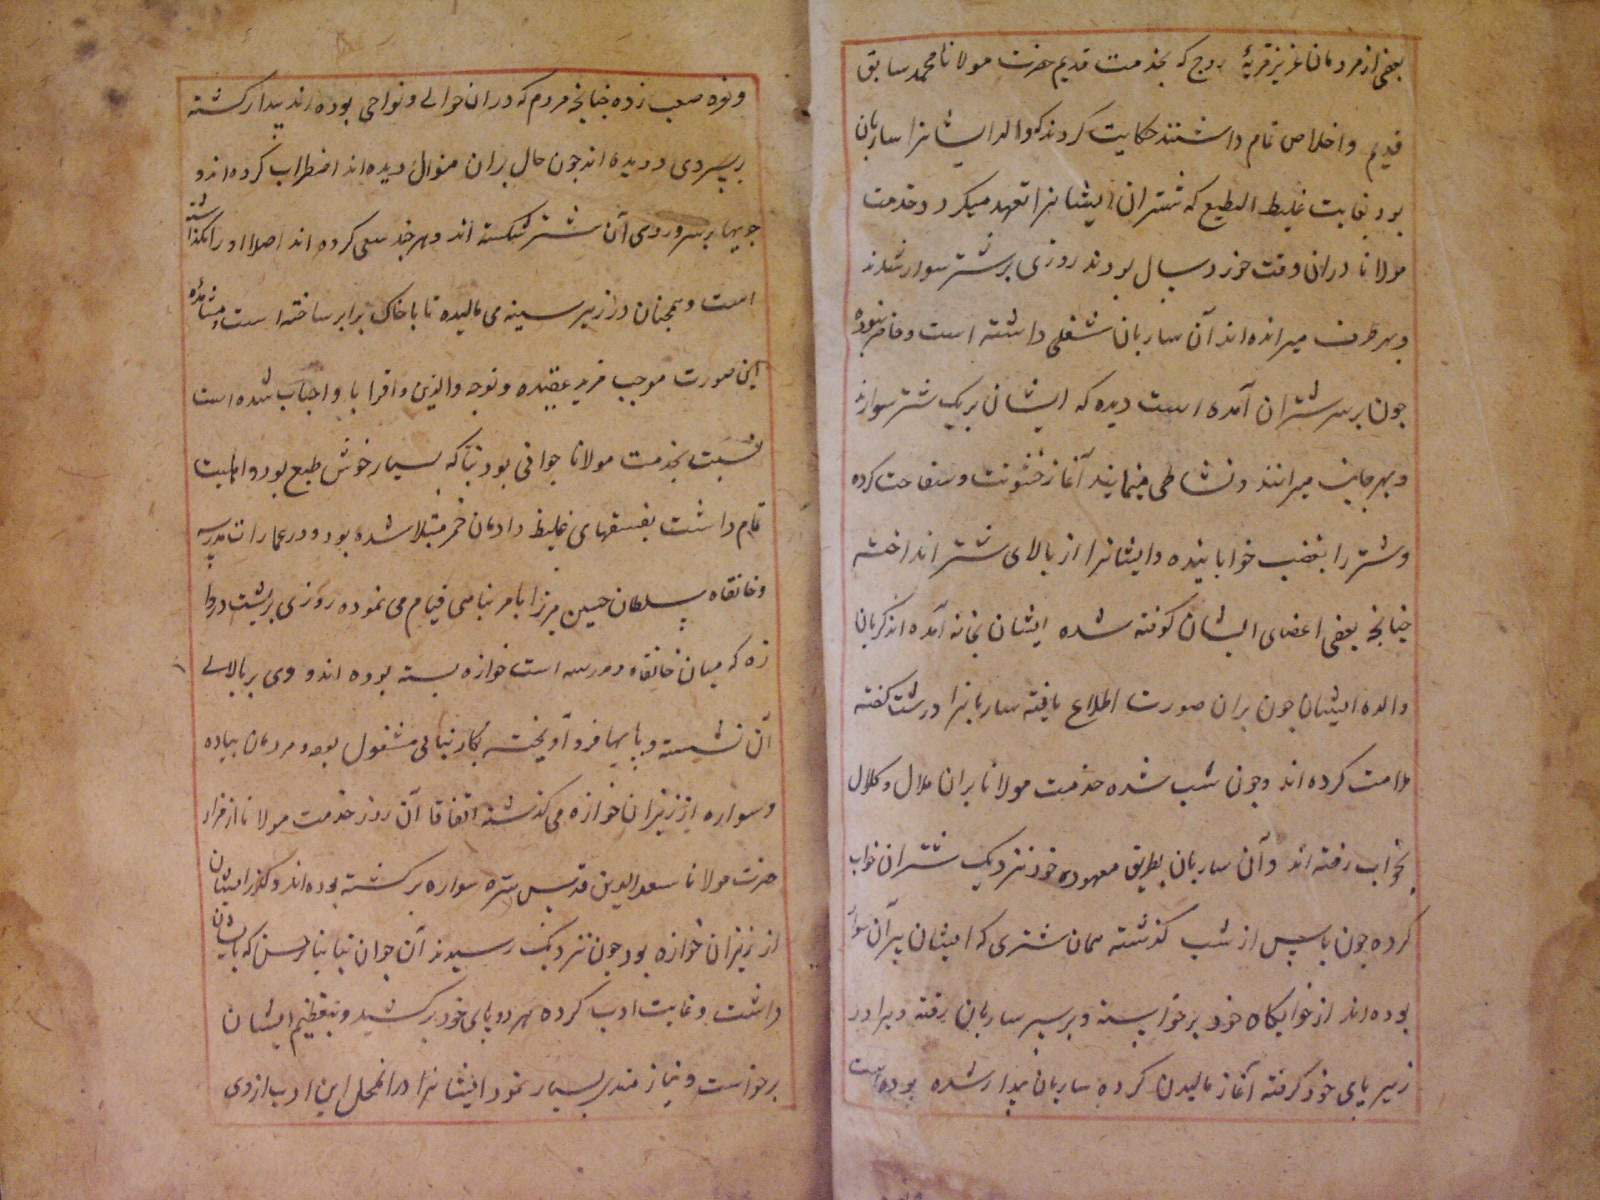 بعضی از مردمان عزیز قریهٔ روج که بخدمت قدیم حضرت مولانا محمد سابق
قدیم و اخلاص تمام داشتند حکایت کردند که والد ایشانرا ساربان
بود بغایت غلیظ الطبع که شتران ایشانرا تعهد میکرد و خدمت
مولانا دران وقت خورد سال بودند روزی بر شتر سوار شدند
و بهر طرف میرانده اند آن ساربان شغلی داشته است و حاضر نبوده
چون بر سر شتران آمده است دیده که ایشان بر یک شتر سوارند
و بهر جانب میرانند و نشاطی مینمایند آغاز خشونت و سفاحت کرده
و شتر را بغضب خوابانیده و ایشانرا از بالای شتر انداخته
چنانچه بعضی اعضای ایشان کوفته شده ایشان بخانه آمده اند گریان
والده ایشان چون بران صورت اطلاع یافته ساربانرا درشت گفته
ملامت کرده اند و چون شب شده خدمت مولانا بران ملال و کلال
بخواب رفته اند و آن ساربان بطریق معهوده خود نزدیک شتران خواب
کرده چون پاسی از شب گذشته همان شتری که ایشان بران سوار
بوده اند از خوابگاه خود برخواسته و بر سر ساربان رفته و برا در
زیر پای خود گرفته آغاز مالیدن کرده ساربان بیدار شده بوده است
و نعره صعب زده چنانچه مردم که دران حوالی و نواحی بوده اند بیدار گشته
بر سر وی دویده اند چون حال بران منوال دیده اند اضطراب کرده اند و
چوبها بر سر و روی آن شتر شکسته اند و هر چند سعی کرده اند اصلا او را نگذاشته
است و همچنان در زیر سینه می مالیده تا با خاک برابر ساخته است مشاهده
این صورت موجب مزید عقیده و توجه والدین و اقربا و اجناب شده است
نسبت بخدمت مولانا جوانی بود بنا که بسیار خوش طبع بود و اهلیت
تمام داشت بفسقهای غلیظ و ادمان خمر مبتلا شده بود و در عمارات مدرسه
و خانقاه سلطان حسین میرزا بامر بنایی قیام می نموده روزی بر پشت در
زه که میان خانقاه و مدرسه است خوازه بسته بوده اند و وی بر بالای
آن نشسته و پایها فرو آویخته بکار بنایی مشغول بود و مردمان پیاده
و سواره از زیر ان خوازه می گذشته اتفاقا آن روز خدمت مولانا از مزار
حضرت مولانا سعد الدین قدس سره سواره برگشته بوده اند و گذر ایشان
از زیر ان خوازه بود چون نزدیک رسیدند آن جوان بنا بنا بر حسنی که بایشان
داشت رعایت ادب کرده هر دو پای خود برکشید و بتعظیم ایشان
برخواست و نیازمندی بسیار نمود ایشانرا در انمحل این ادب از وی